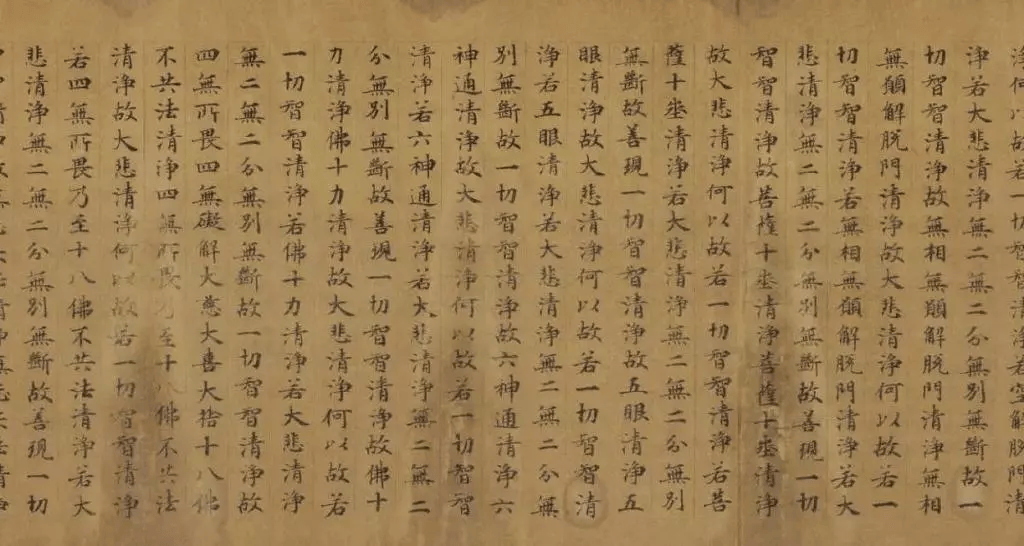 淨何以故若一切智智清淨若空解脫門清
淨若大悲清淨無二無二分無別無斷故一
切智智清淨故無相無願解脫門清淨無相
無願解脫門清淨故大悲清淨何以故若一
切智智清淨若無相無願解脫門清淨若大
悲清淨無二無二分無別無斷故善現一切
智智清淨故菩薩十地清淨菩薩十地清淨
故大悲清淨何以故若一切智智清淨若菩
薩十地清淨若大悲清淨無二無二分無別
無斷故善現一切智智清淨故五眼清淨五
眼清淨故大悲清淨何以故若一切智智清
淨若五眼清淨若大悲清淨無二無二分無
別無斷故一切智智清淨故六神通清淨六
神通清淨故大悲清淨何以故若一切智智
清淨若六神通清淨若大悲清淨無二無二
分無別無斷故善現一切智智清淨故佛十
力清淨佛十力清淨故大悲清淨何以故若
一切智智清淨若佛十力清淨若大悲清淨
無二無二分無別無斷故一切智智清淨故
四無所畏四無礙解大慈大喜大捨十八佛
不共法清淨四無所畏乃至十八佛不共法
清淨故大悲清淨何以故若一切智智清淨
若四無所畏乃至十八佛不共法清淨若大
悲清淨無二無二分無別無斷故善現一切